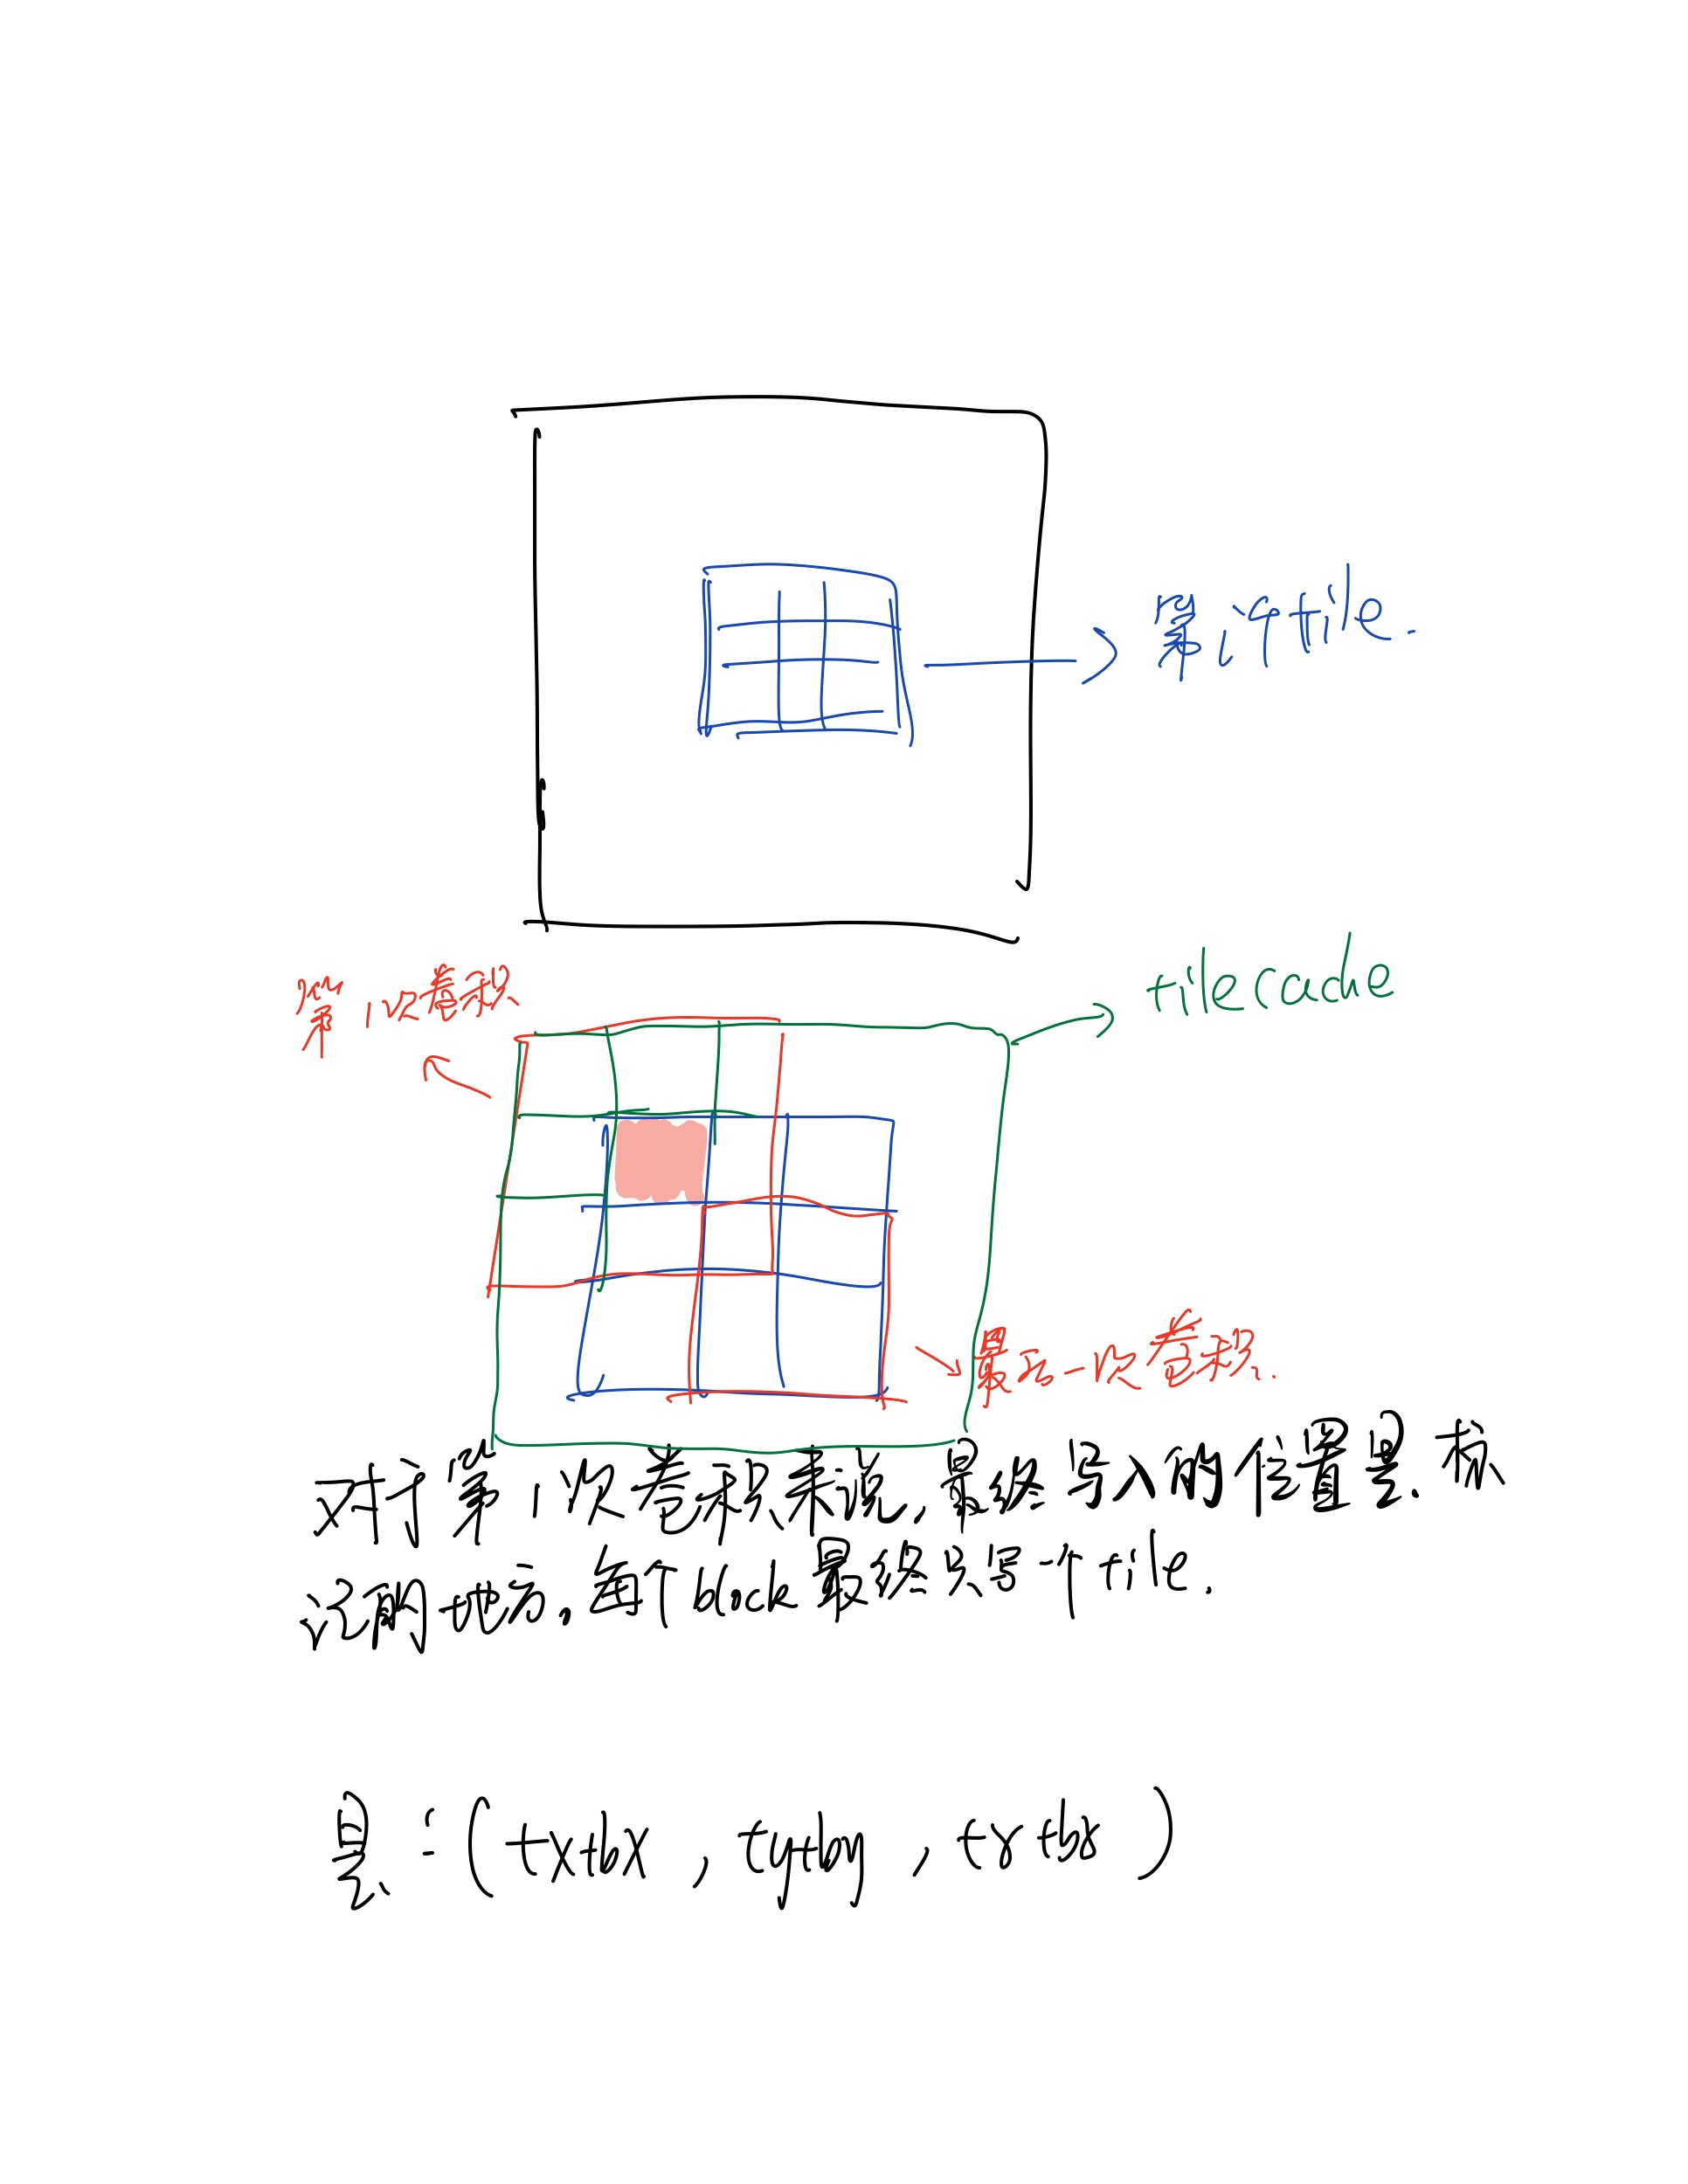 第1个tile.
tilecache
第1次卷积
最后一次卷积.
对于第1次卷积来说,最终写入的位置是标
记的地方,每个block最终只写一个tile.
是:(tx+bx, ty+by, tz+bz)